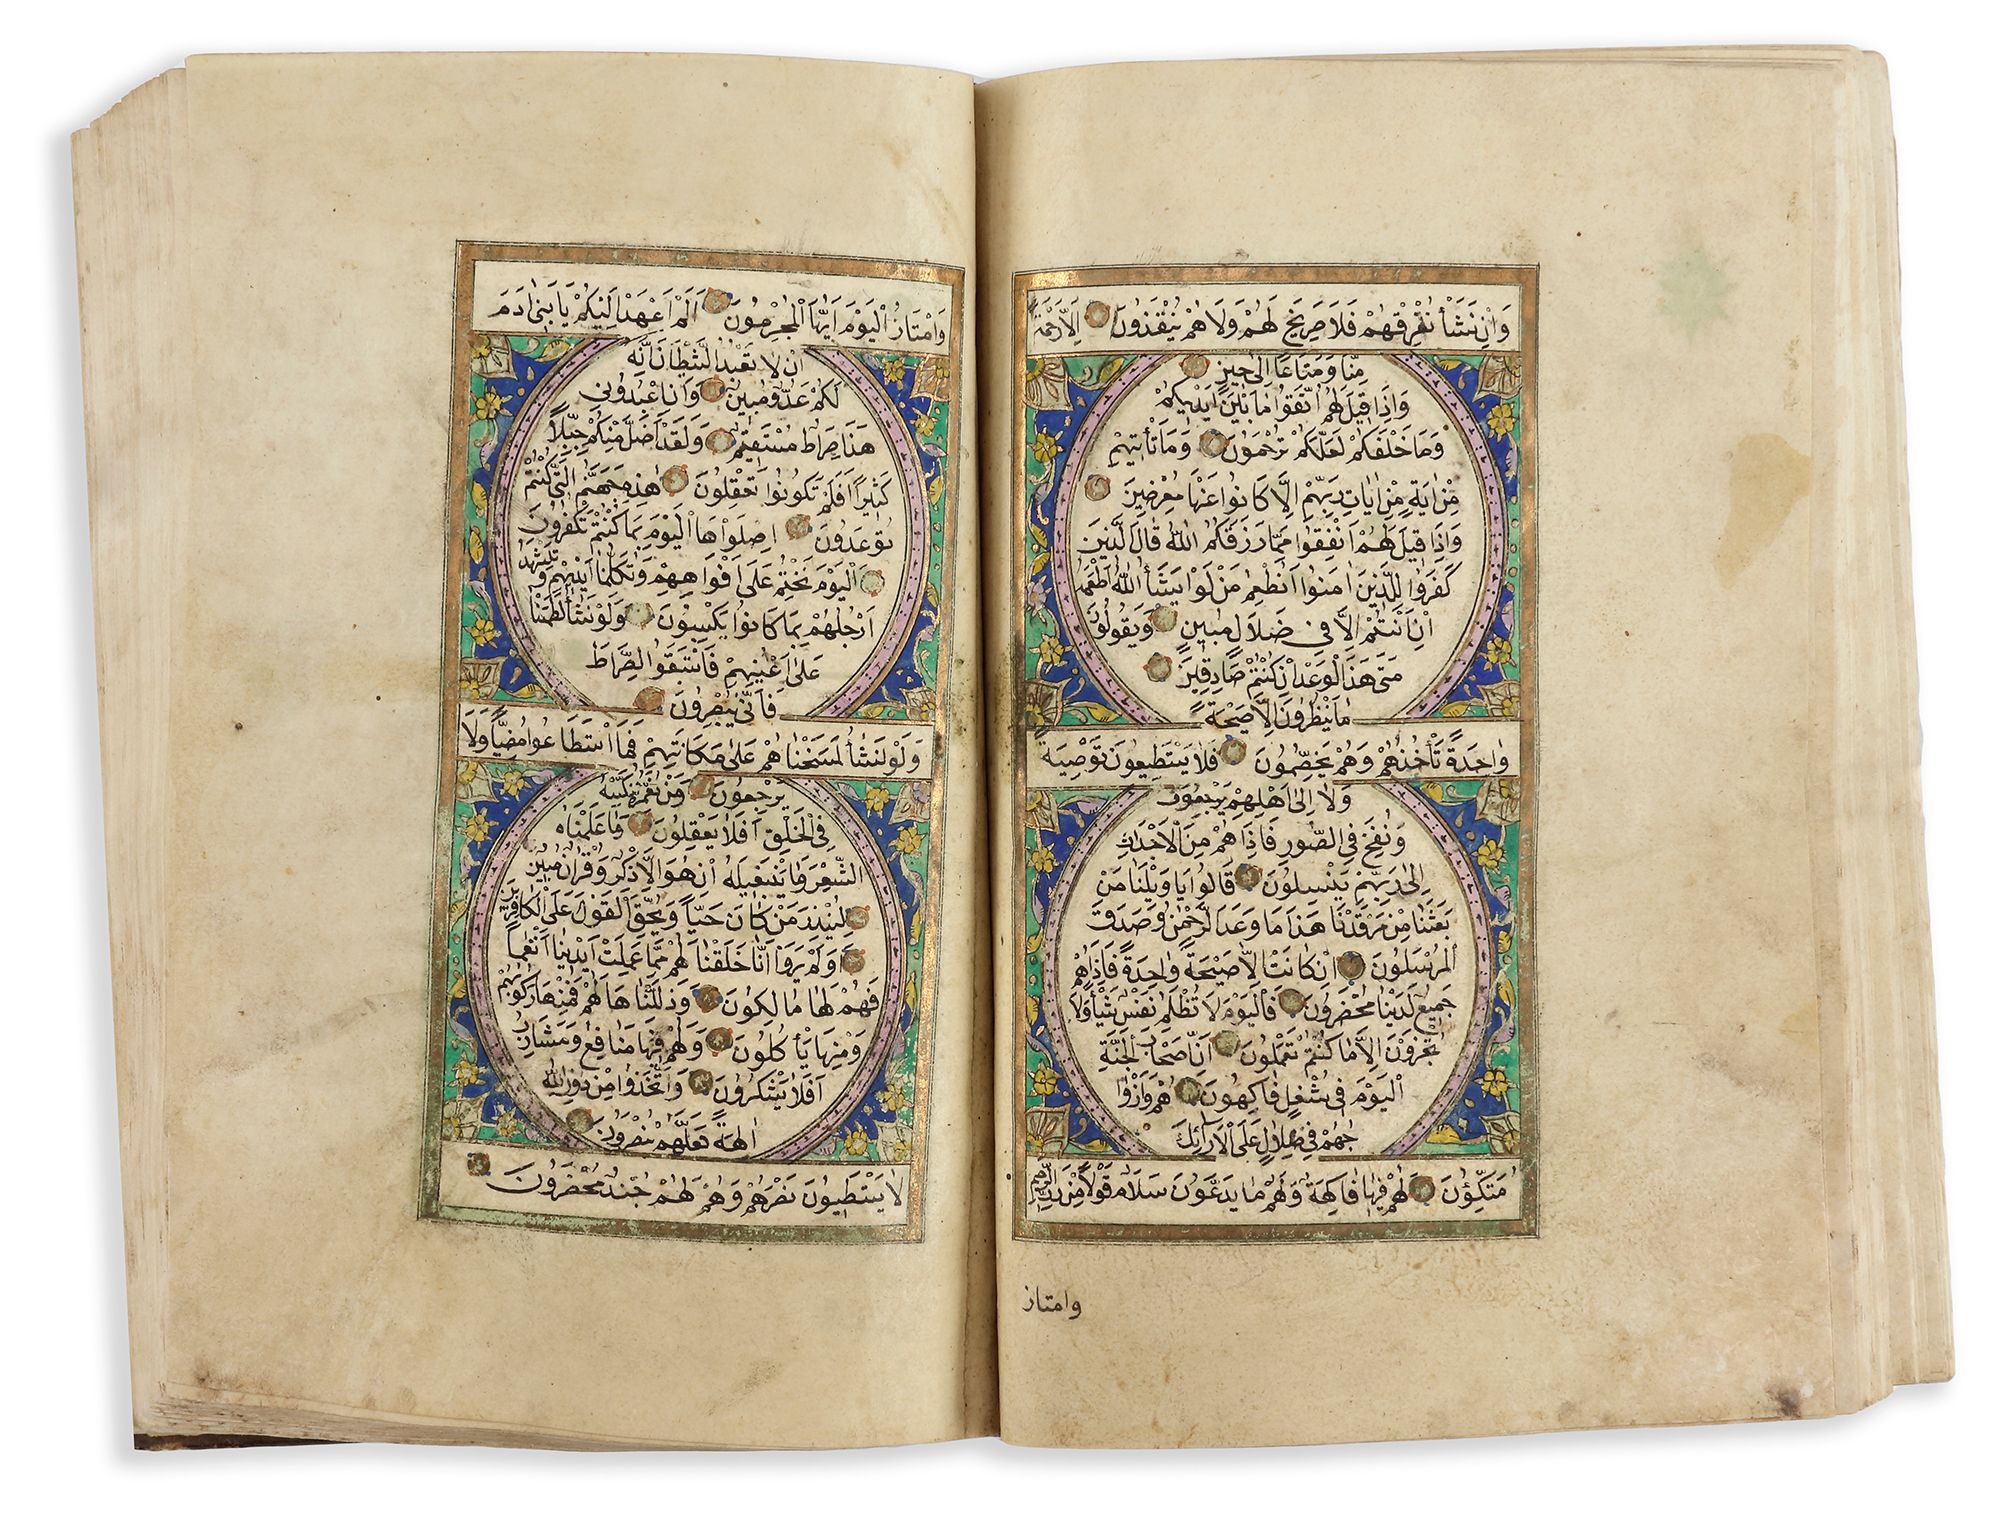 وَاِنْ نَشَأْ نُغْرِقْهُمْ فَلَا صَرِيخَ لَهُمْ وَلَا هُمْ يُنْقَذُونَ اِلَّا رَحْمَةً
مِنَّا وَمَتَاعًا اِلٰى حِينٍ
وَاِذَا قِيلَ لَهُمُ اتَّقُوا مَا بَيْنَ اَيْدِيكُمْ
وَمَا خَلْفَكُمْ لَعَلَّكُمْ تُرْحَمُونَ وَمَا تَأْتِيهِمْ
مِنْ اٰيَةٍ مِنْ اٰيَاتِ رَبِّهِمْ اِلَّا كَانُوا عَنْهَا مُعْرِضِينَ
وَاِذَا قِيلَ لَهُمْ اَنْفِقُوا مِمَّا رَزَقَكُمُ اللّٰهُ قَالَ الَّذِينَ
كَفَرُوا لِلَّذِينَ اٰمَنُوا اَنُطْعِمُ مَنْ لَوْ يَشَاءُ اللّٰهُ اَطْعَمَهُ
اِنْ اَنْتُمْ اِلَّا فِي ضَلَالٍ مُبِينٍ وَيَقُولُونَ
مَتٰى هٰذَا الْوَعْدُ اِنْ كُنْتُمْ صَادِقِينَ
مَا يَنْظُرُونَ اِلَّا صَيْحَةً
وَاحِدَةً تَأْخُذُهُمْ وَهُمْ يَخِصِّمُونَ فَلَا يَسْتَطِيعُونَ تَوْصِيَةً
وَلَا اِلٰى اَهْلِهِمْ يَرْجِعُونَ
وَنُفِخَ فِي الصُّورِ فَاِذَا هُمْ مِنَ الْاَجْدَاثِ
اِلٰى رَبِّهِمْ يَنْسِلُونَ قَالُوا يَا وَيْلَنَا مَنْ
بَعَثَنَا مِنْ مَرْقَدِنَا هٰذَا مَا وَعَدَ الرَّحْمٰنُ وَصَدَقَ
الْمُرْسَلُونَ اِنْ كَانَتْ اِلَّا صَيْحَةً وَاحِدَةً فَاِذَا هُمْ
جَمِيعٌ لَدَيْنَا مُحْضَرُونَ فَالْيَوْمَ لَا تُظْلَمُ نَفْسٌ شَيْئًا وَلَا
تُجْزَوْنَ اِلَّا مَا كُنْتُمْ تَعْمَلُونَ اِنَّ اَصْحَابَ الْجَنَّةِ
الْيَوْمَ فِي شُغُلٍ فَاكِهُونَ هُمْ وَاَزْوَا
جُهُمْ فِي ظِلَالٍ عَلَى الْاَرَائِكِ
مُتَّكِؤُنَ لَهُمْ فِيهَا فَاكِهَةٌ وَلَهُمْ مَا يَدَّعُونَ سَلَامٌ قَوْلًا مِنْ رَبٍّ رَحِيمٍ
وامتاز
وَامْتَازُوا الْيَوْمَ اَيُّهَا الْمُجْرِمُونَ اَلَمْ اَعْهَدْ اِلَيْكُمْ يَا بَنِي اٰدَمَ
اَنْ لَا تَعْبُدُوا الشَّيْطَانَ اِنَّهُ
لَكُمْ عَدُوٌّ مُبِينٌ وَاَنِ اعْبُدُونِي
هٰذَا صِرَاطٌ مُسْتَقِيمٌ وَلَقَدْ اَضَلَّ مِنْكُمْ جِبِلًّا
كَثِيرًا اَفَلَمْ تَكُونُوا تَعْقِلُونَ هٰذِهِ جَهَنَّمُ الَّتِي كُنْتُمْ
تُوعَدُونَ اِصْلَوْهَا الْيَوْمَ بِمَا كُنْتُمْ تَكْفُرُونَ
اَلْيَوْمَ نَخْتِمُ عَلٰى اَفْوَاهِهِمْ وَتُكَلِّمُنَا اَيْدِيهِمْ وَتَشْهَدُ
اَرْجُلُهُمْ بِمَا كَانُوا يَكْسِبُونَ وَلَوْ نَشَاءُ لَطَمَسْنَا
عَلٰى اَعْيُنِهِمْ فَاسْتَبَقُوا الصِّرَاطَ
فَاَنّٰى يُبْصِرُونَ
وَلَوْ نَشَاءُ لَمَسَخْنَاهُمْ عَلٰى مَكَانَتِهِمْ فَمَا اسْتَطَاعُوا مُضِيًّا وَلَا
يَرْجِعُونَ وَمَنْ نُعَمِّرْهُ نُنَكِّسْهُ
فِي الْخَلْقِ اَفَلَا يَعْقِلُونَ وَمَا عَلَّمْنَاهُ
الشِّعْرَ وَمَا يَنْبَغِي لَهُ اِنْ هُوَ اِلَّا ذِكْرٌ وَقُرْاٰنٌ مُبِينٌ
لِيُنْذِرَ مَنْ كَانَ حَيًّا وَيَحِقَّ الْقَوْلُ عَلَى الْكَافِرِينَ
اَوَلَمْ يَرَوْا اَنَّا خَلَقْنَا لَهُمْ مِمَّا عَمِلَتْ اَيْدِينَا اَنْعَامًا
فَهُمْ لَهَا مَالِكُونَ وَذَلَّلْنَاهَا لَهُمْ فَمِنْهَا رَكُوبُهُمْ
وَمِنْهَا يَأْكُلُونَ وَلَهُمْ فِيهَا مَنَافِعُ وَمَشَارِبُ
اَفَلَا يَشْكُرُونَ وَاتَّخَذُوا مِنْ دُونِ اللّٰهِ
اٰلِهَةً لَعَلَّهُمْ يُنْصَرُونَ
لَا يَسْتَطِيعُونَ نَصْرَهُمْ وَهُمْ لَهُمْ جُنْدٌ مُحْضَرُونَ